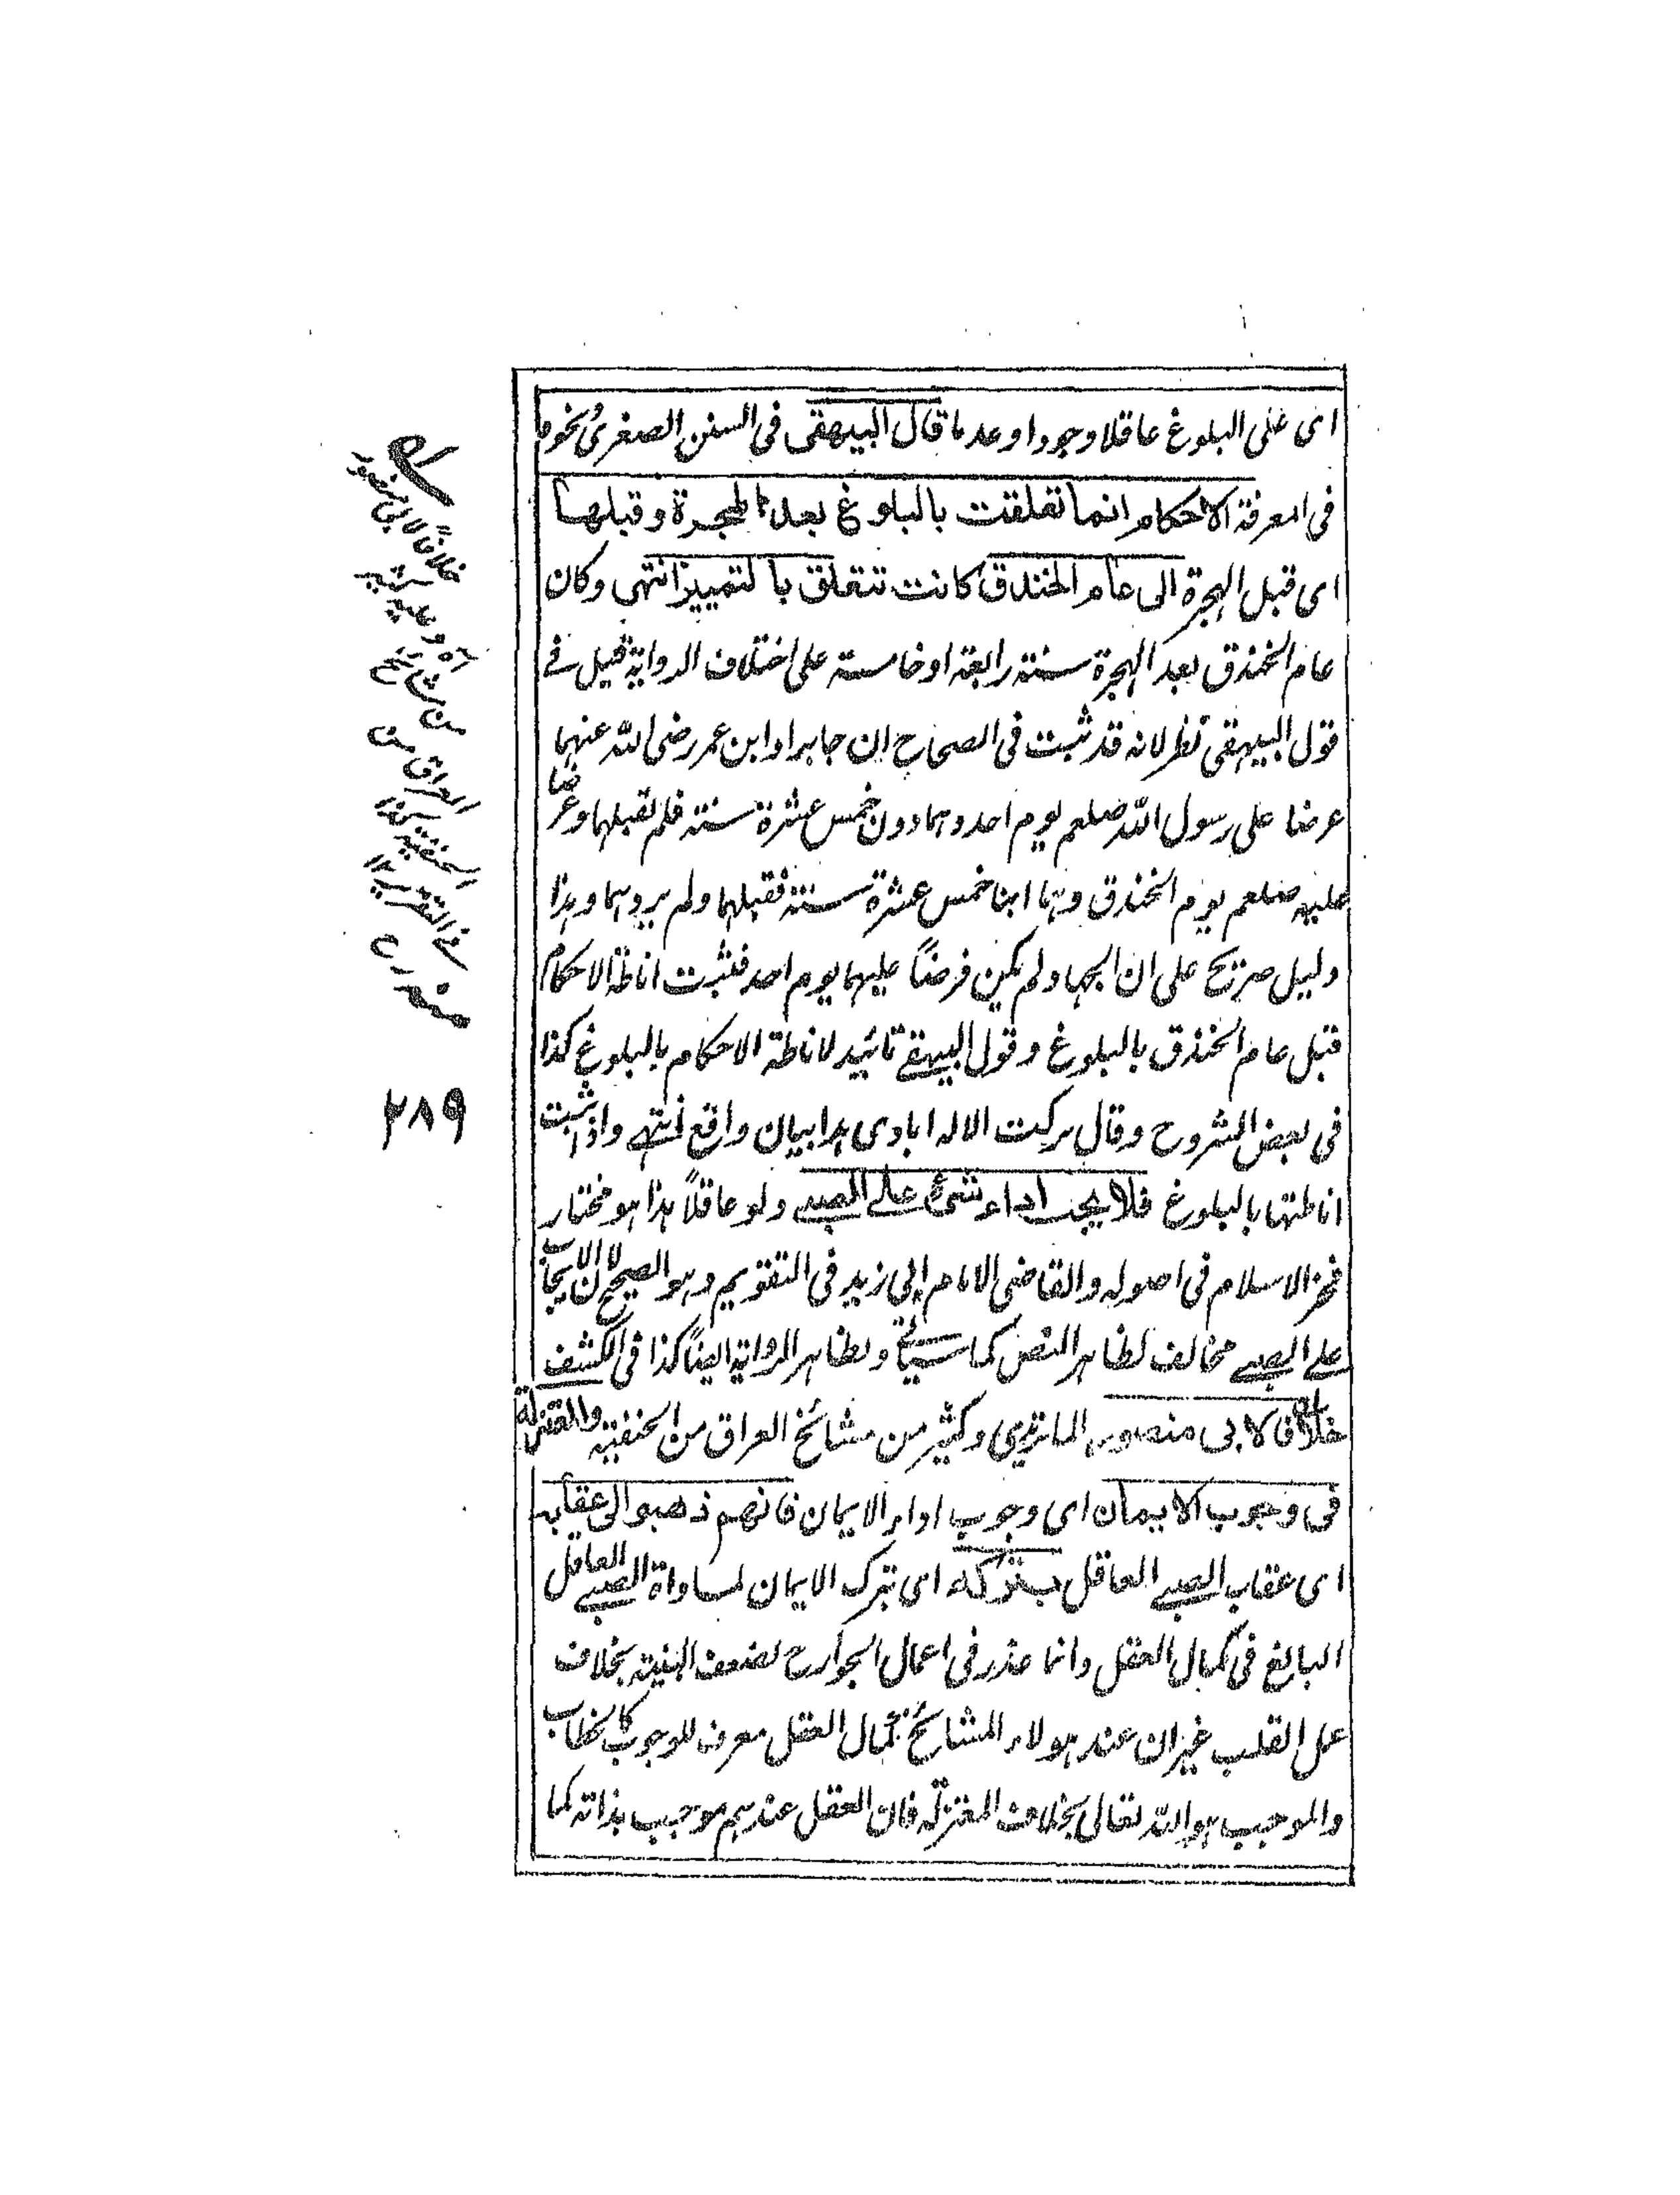 اى على البلوغ عاقلا وجودا وعدما قال البيهقى فى السنن الصغرى نحوه
فى المعرفة الاحكام انما تعلقت بالبلوغ بعد الهجرة وقبلها
اى قبل الهجرة الى عام الخندق كانت تتعلق بالتمييز انتهى وكان
عام الخندق بعد الهجرة سنة رابعة او خامسة على اختلاف الرواية قيل فے
قول البيهقى نظر لانه قد ثبت فى الصحاح ان جابرا وابن عمر رضى الله عنهما
عرضا على رسول الله صلعم يوم احد وهما دون خمس عشرة سنة فلم يقبلهما وعرضا
عليه صلعم يوم الخندق وهما ابنا خمس عشرة سنة فقبلهما ولم يردهما وهذا
دليل صريح على ان الجهاد لم يكن فرضاً عليهما يوم احد فثبت اناطة الاحكام
قبل عام الخندق بالبلوغ وقول البيهقے تائيد لاناطة الاحكام بالبلوغ كذا
فى بعض الشروح وقال بركت الاله ابادى هذا بيان واقع انتهى واذا ثبت
اناطتها بالبلوغ فلا يجب اداء شئ علے الصبے ولو عاقلاً هذا هو مختار
فخر الاسلام فى اصوله والقاضى الامام ابى زيد فى التقويم وهو الصحيح لان الايجاب
علے الصبے مخالف لظاهر النص كما سيأتے ولظاهر الرواية ايضاً كذا فى الكشف
خلافا لابى منصور الماتريدى وكثير من مشائخ العراق من الحنفية والمعتزلة
فى وجوب الايمان اى وجوب اداء الايمان فانهم ذهبوا الى عقابه
اى عقاب الصبے العاقل بتركه اى بترك الايمان لمساواة الصبے العاقل
البالغ فى كمال العقل وانما عذر فى اعمال الجوارح لضعف البنية بخلاف
عمل القلب غير ان عند هولاء المشائخ كمال العقل معرف للوجوب كالخطاب
والموجب هو الله تعالى بخلاف المعتزلة فان العقل عندهم موجب بذاته كما
خلافاً لابى منصور
من مشائخ
العراق من
الحنفية
فے التقرير
٢٨٩